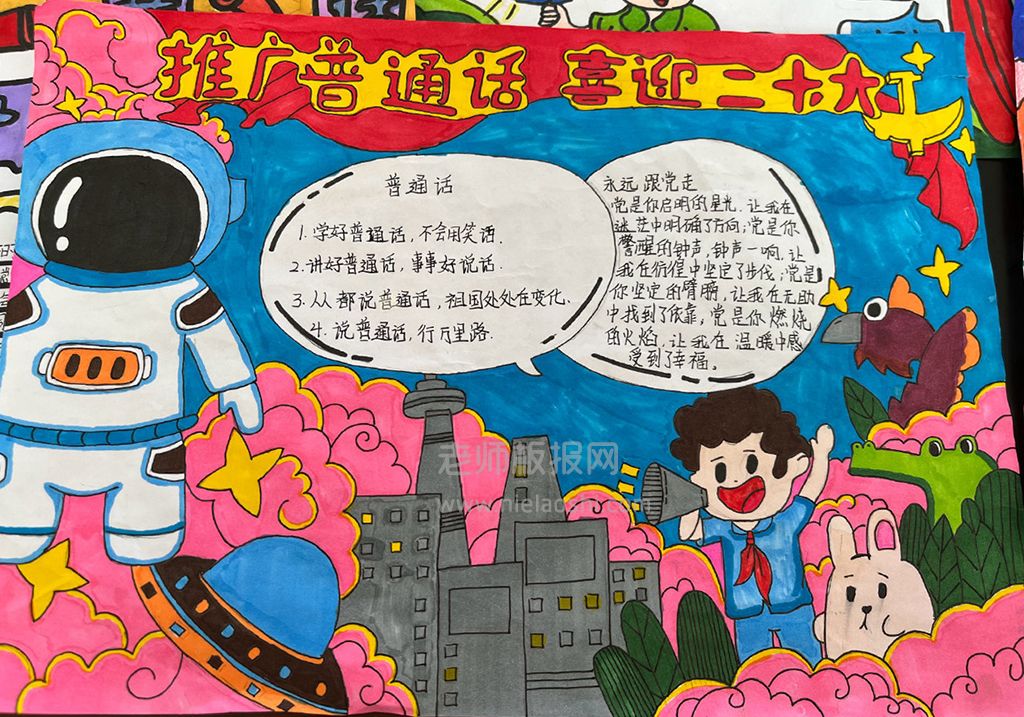 推广普通话 喜迎二十大
普通话
1. 学好普通话,不会闹笑话.
2. 讲好普通话,事事好说话.
3. 人人都说普通话,祖国处处在变化.
4. 说普通话,行万里路.
永远跟党走
党是你启明的星光.让我在
迷茫中明确了方向;党是你
警醒的钟声,钟声一响,让
我在彷徨中坚定了步伐;党是
你坚定的臂膀,让我在无助
中找到了依靠,党是你燃烧
的火焰.让我在温暖中感
受到了幸福。
老师板报网